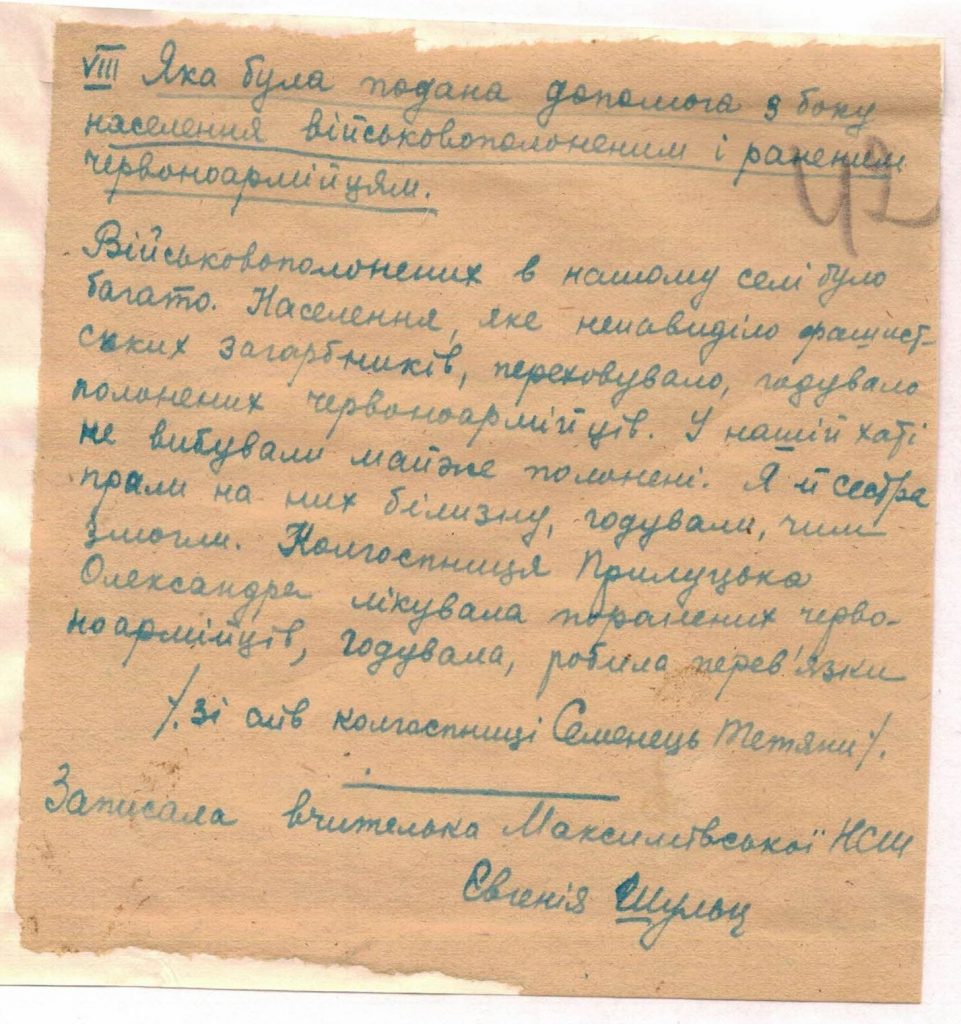 VIII Яка була подана допомога з боку
населення військовополоненим і раненим
червоноармійцям.
42
Військовополонених в нашому селі було
багато. Населення, яке ненавиділо фашист-
ських загарбників, переховувало, годувало
полонених червоноармійців. У нашій хаті
не вибували майже полонені. Я й сестра
прали на них білизну, годували, чим
змогли. Колгоспниця Прилуцька
Олександра лікувала поранених черво-
ноармійців, годувала, робила перев'язки
/. зі слів колгоспниці Семенець Тетяни /.
Записала вчителька Максимівської НСШ
Євгенія Шульц